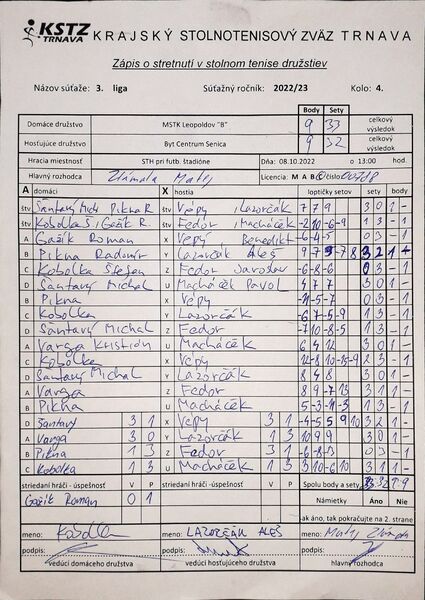 KSTZ TRNAVA KRAJSKÝ STOLNOTENISOVÝ ZVÄZ TRNAVA
Zápis o stretnutí v stolnom tenise družstiev
Názov súťaže: 3. liga Súťažný ročník: 2022/23 Kolo: 4.
Body Sety
Domáce družstvo MSTK Leopoldov "B" 9 33 celkový výsledok
Hosťujúce družstvo Byt Centrum Senica 9 32 celkový výsledok
Hracia miestnosť STH pri futb. štadióne Dňa: 08.10.2022 o 13:00 hod.
Hlavný rozhodca Zlámala Matej Licencia: M A B C číslo 00718
A domáci X hostia loptičky setov sety body
štv Šantavý Mich Pikna R štv Vépy , Lazorčák 7 7 9 3 0 1 -
štv Kobolka Š, Gažík R. štv Fedor , Macháček -2 10 -6 -9 1 3 - 1
A Gažík Roman X Vépy Benedikt -6 -4 -5 0 3 - 1
B Pikna Radomír Y Lazorčák Aleš 9 -7 5 -7 8 3 2 1 -
C Kobolka Štefan Z Fedor Jaroslav -6 -8 -6 0 3 - 1
D Šantavý Michal U Macháček Pavol 4 7 7 3 0 1 -
B Pikna X Vépy -11 -5 -7 0 3 - 1
C Kobolka Y Lazorčák -6 -7 5 -9 1 3 - 1
D Šantavý Michal Z Fedor -7 10 -8 -5 1 3 - 1
A Varga Kristián U Macháček 6 4 12 3 0 1 -
C Kobolka X Vépy -12 -8 10 -15 -9
D Šantavý Michal Y Lazorčák 8 4 8 3 0 1 -
A Varga Z Fedor 8 9 -7 13 3 1 1 -
B Pikna U Macháček 5 -3 -11 -3 1 3 - 1
D Šantavý 3 1 X Vépy 3 1 -4 -5 5 9 10 3 2 1 -
A Varga 3 0 Y Lazorčák 1 3 10 9 9 3 0 1 -
B Pikna 1 3 Z Fedor 3 1 -6 -8 -3 0 3 - 1
C Kobolka 1 3 U Macháček 1 3 3 10 -6 10 3 1 1 -
striedaní hráči - úspešnosť V P striedaní hráči - úspešnosť V P Spolu body a sety 33:32 9:9
Gažík Roman 0 1 Námietky Áno Nie
ak áno, tak pokračujte na 2. strane
meno: Kobolka meno: LAZORČÁK ALEŠ meno: Matej Zlámala
podpis: podpis: podpis:
vedúci domáceho družstva vedúci hosťujúceho družstva hlavný rozhodca